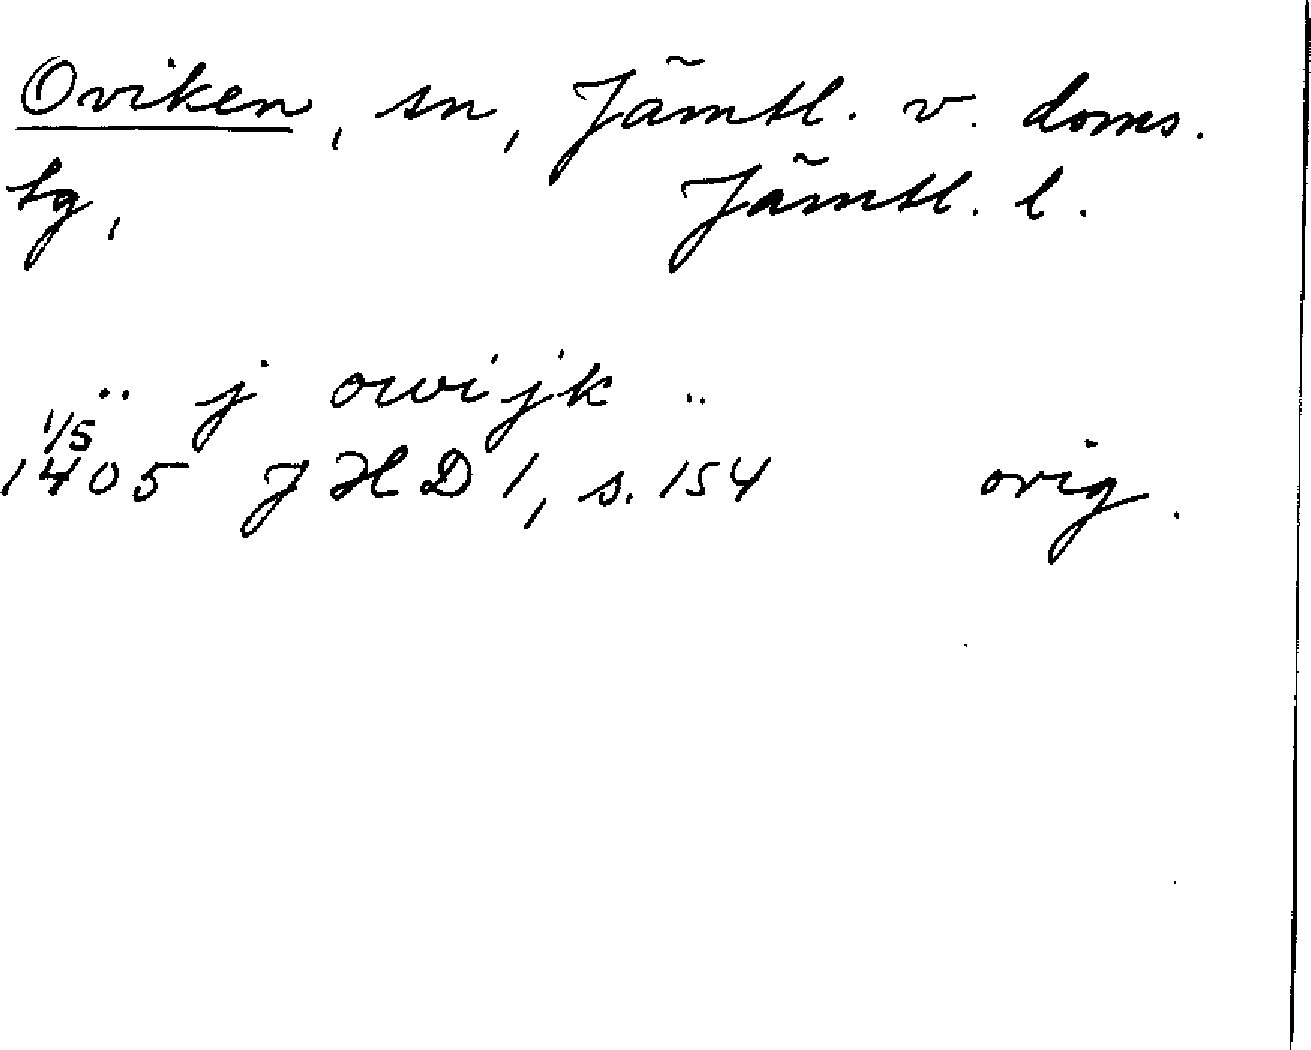 Oviken, sn, Jämtl. v. doms.
tg, Jämtl. l.
.. j owijk ..
1/5
1405 JHD 1, s. 154 orig.